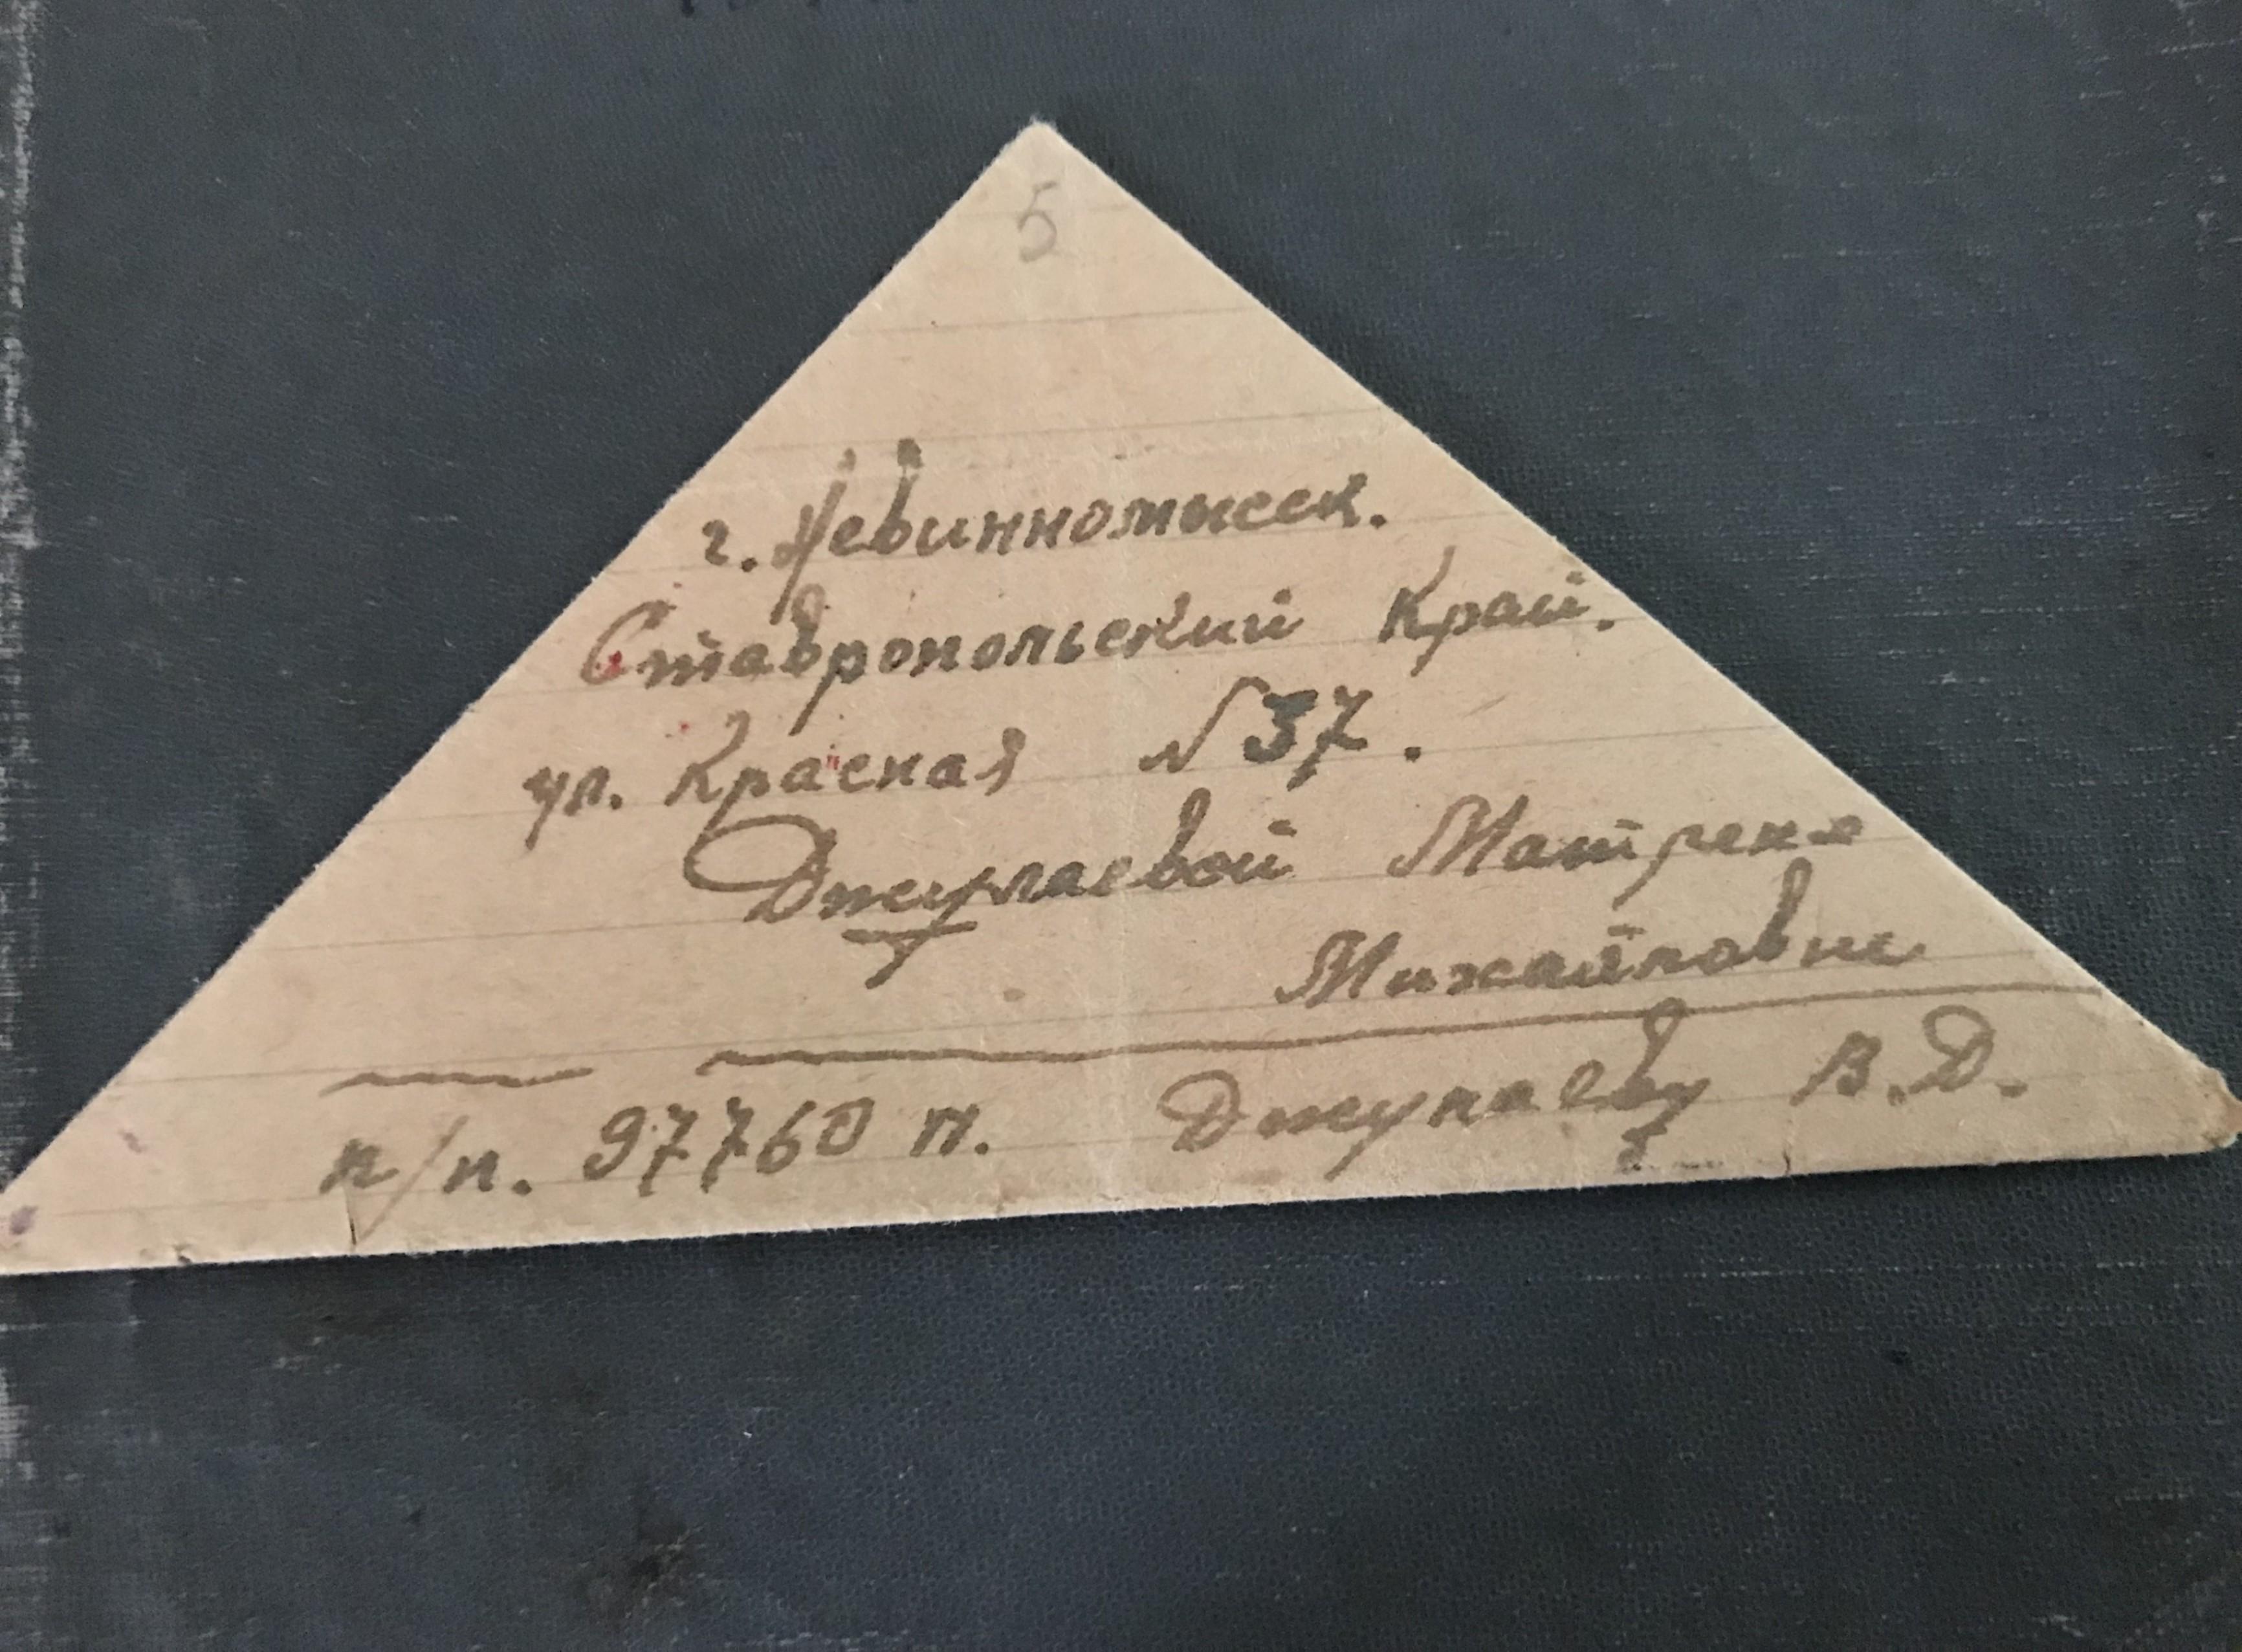 5
г. Невинномысск.
Ставропольский Край.
ул. Красная № 37.
Джулаевой Матрене
Михайловне
п/п. 97760 п. Джулаеву В.Д.